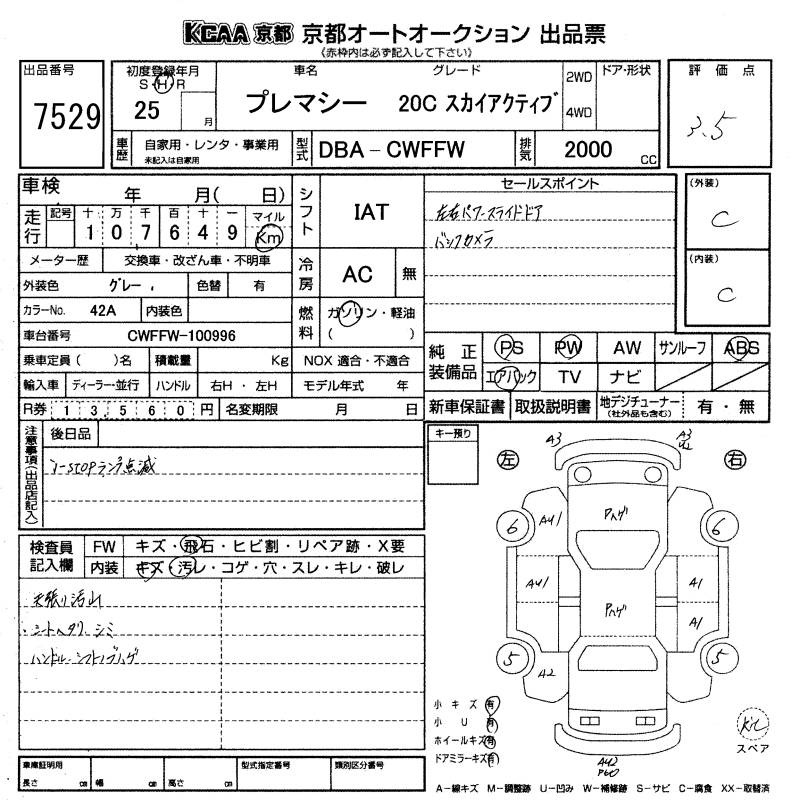 KCAA 京都 京都オートオークション 出品票
(赤枠内は必ず記入して下さい)
出品番号
7529
初度登録年月
S・H・R
25
月
車名
グレード
プレマシー 20C スカイアクティブ
2WD
4WD
ドア・形状
評価点
3.5
車歴
自家用・レンタ・事業用
未記入は自家用
型式
DBA-CWFFW
排気
2000
CC
車検
年 月( 日)
走行
記号
十 万 千 百 十 一
1 0 7 6 4 9
マイル
Km
メーター歴
交換車・改ざん車・不明車
外装色
グレー
色替
有
カラーNo.
42A
内装色
車台番号
CWFFW-100996
乗車定員( )名
積載量
Kg
NOX 適合・不適合
輸入車
ディーラー・並行
ハンドル
右H・左H
モデル年式 年
R券
1 3 5 6 0 円
名変期限
月 日
シフト
IAT
冷房
AC
無
燃料
ガソリン・軽油
( )
セールスポイント
左右パワースライドドア
バックカメラ
(外装)
C
(内装)
C
純正装備品
PS
PW
AW
サンルーフ
ABS
エアバック
TV
ナビ
新車保証書
取扱説明書
地デジチューナー
(社外品も含む)
有・無
注意事項(出品店記入)
後日品
i-STOPランプ点滅
キー預り
検査員記入欄
FW
キズ・飛石・ヒビ割・リペア跡・X要
内装
キズ・汚レ・コゲ・穴・スレ・キレ・破レ
天張り汚れ
シートヘタリ、シミ
ハンドル、シフトノブハゲ
左
右
A3
A3
U2
Pハゲ
6
6
AU1
AU1
A1
Pハゲ
A1
5
5
A2
AU2
小キズ 有
小U 有
ホイールキズ 有
ドアミラーキズ 有
スペア
車庫証明用
長さ cm
幅 cm
高さ cm
型式指定番号
類別区分番号
A-線キズ M-調整跡 U-凹み W-補修跡 S-サビ C-腐食 XX-取替済